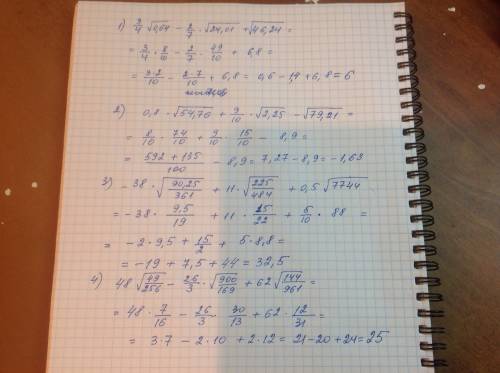 1) 3/4 · √0,64 − 2/7 · √24,01 + √46,24 =
= 3/4 · 8/10 − 2/7 · 49/10 + 6,8 =
= 3·2/10 − 2·7/10 + 6,8 = 0,6 − 1,4 + 6,8 = 6
2) 0,8 · √54,76 + 9/10 · √2,25 − √79,21 =
= 8/10 · 74/10 + 9/10 · 15/10 − 8,9 =
= 592 + 135/100 − 8,9 = 7,27 − 8,9 = −1,63
3) −38 · √90,25/361 + 11 · √225/484 + 0,5 √7744
= −38 · 9,5/19 + 11 · 15/22 + 5/10 · 88 =
= −2 · 9,5 + 15/2 + 5 · 8,8 =
= −19 + 7,5 + 44 = 32,5
4) 48 √49/256 − 26/3 · √900/169 + 62 √144/961 =
= 48 · 7/16 − 26/3 · 30/13 + 62 · 12/31 =
= 3·7 − 2·10 + 2·12 = 21−20+24=25